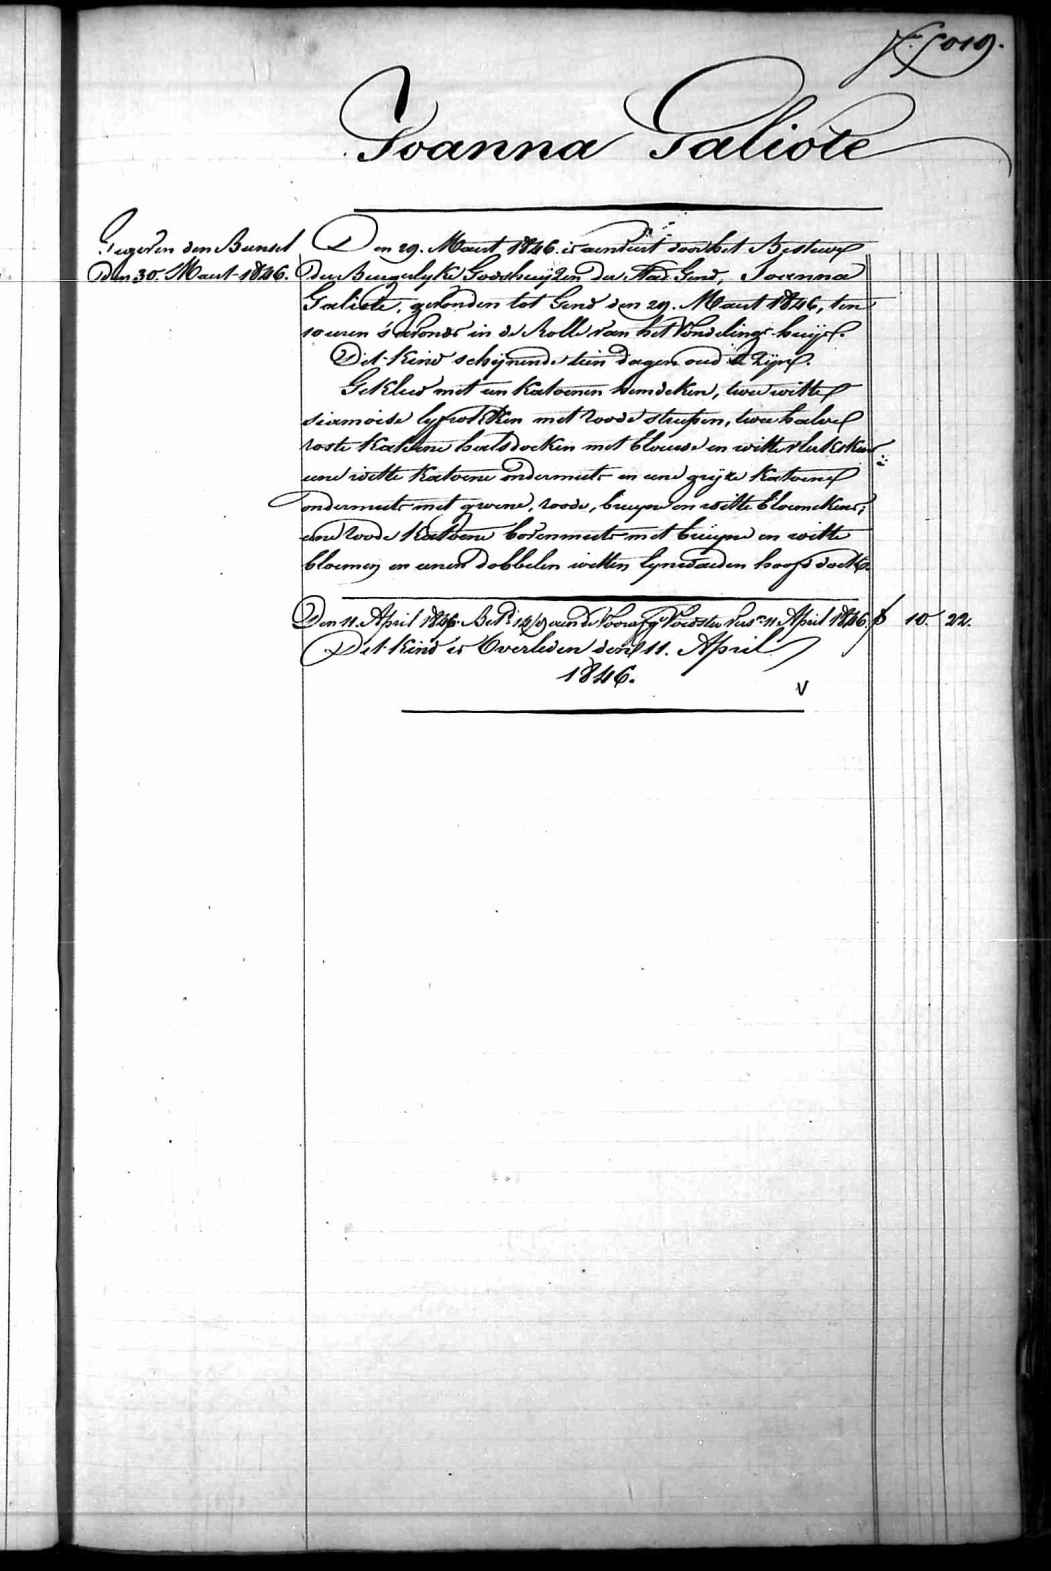 f.° 5019.
Joanna Galiote
Gegeven den Bunsel
den 30. Maert 1846.
Den 29. Maert 1846. is aenveird door het Bestier
der Burgerlyke Godshuyzen der Stad Gend, Joanna
Galiote, gevonden tot Gend den 29. Maert 1846, ten
10 uren s'avonds in de Rolle van het Vondelings-huys.
Dit Kind schynende tien dagen oud te zyn.
Gekleed met een Katoenen hemdeken, twee witte
siamoise lyfrokken met roode streepen, twee halve
roste Katoene halsdoeken met blauwe en witte vlekskens
eene witte Katoene ondermuts en eene gryze Katoene
ondermuts met groene, roode, bruyne en witte bloemekens;
eene roode Katoene bovenmuts met bruyne en witte
bloemen en eenen dobbelen witten lynwaeden hoofddoek.
Den 11 April 1846. Bet.d 14/9 aen de Vooraf.g Voedster vers.n 11 April 1846. f 10. 22.
Dit Kind is Overleden den 11. April
1846.
V